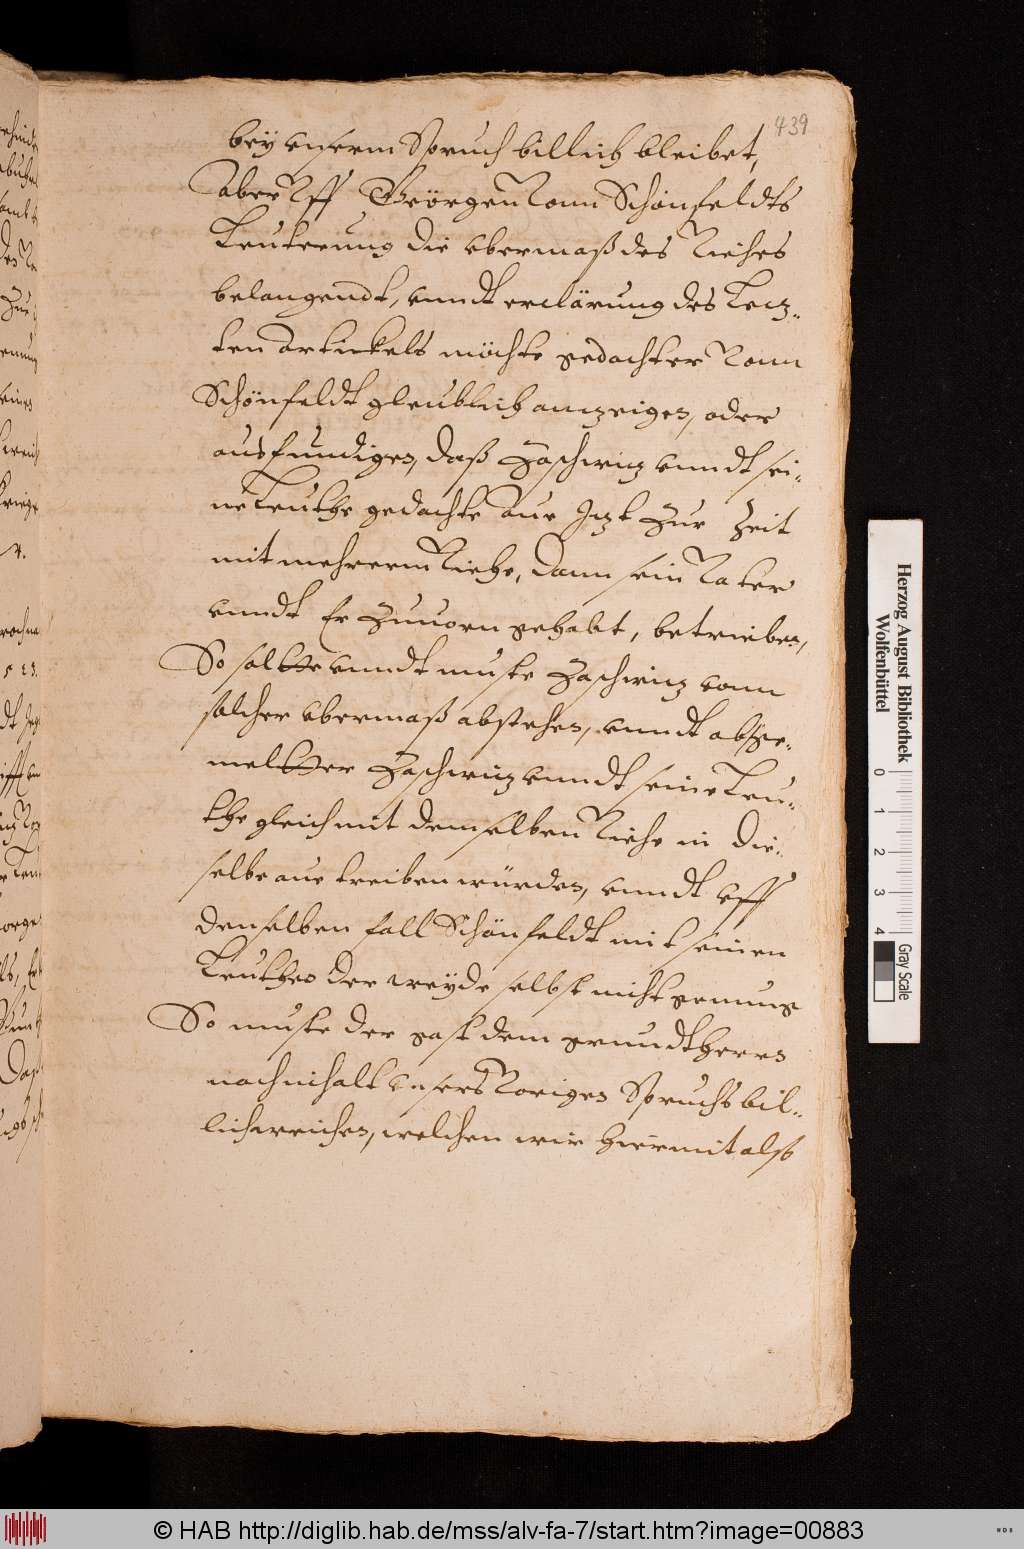 439
bey vnserm Spruch billich bleibet,
aber Vff Geörgen Vonn Schönfeldts
Leuterung die vbermaß des Viehes
belangendt, vnndt erclärung des Lecz-
ten artickels möchte gedachter Vonn
Schönfeldt gleublich anzeigen, oder
ausfundigen, daß Zaschwiz vnndt sei-
ne Leuthe gedachte Aue Jzt Zur Zeit
mit mehrerm Viehe, dann sein Vater
vnndt Er Zuuorn gehabt, betrieben,
So solte vnndt muste Zaschwiz vonn
solcher vbermaß abstehen, vnndt abge-
melter Zaschwiz vnndt seine Leu-
the gleich mit demselben Viehe in die-
selbe aue treiben würden, vnndt vff
denselben fall Schönfeldt mit seinen
Leuthen der weyde selbst nicht genung
So muste der gast dem grundtherrn
nach inhalt vnsers Vorigen Spruchs bil-
lich weichen, welchen wir hiermit also
Herzog August Bibliothek
Wolfenbüttel
0 1 2 3 4
Gray Scale
© HAB http://diglib.hab.de/mss/alv-fa-7/start.htm?image=00883